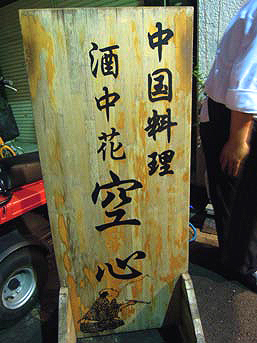 中国料理
酒中花
空心